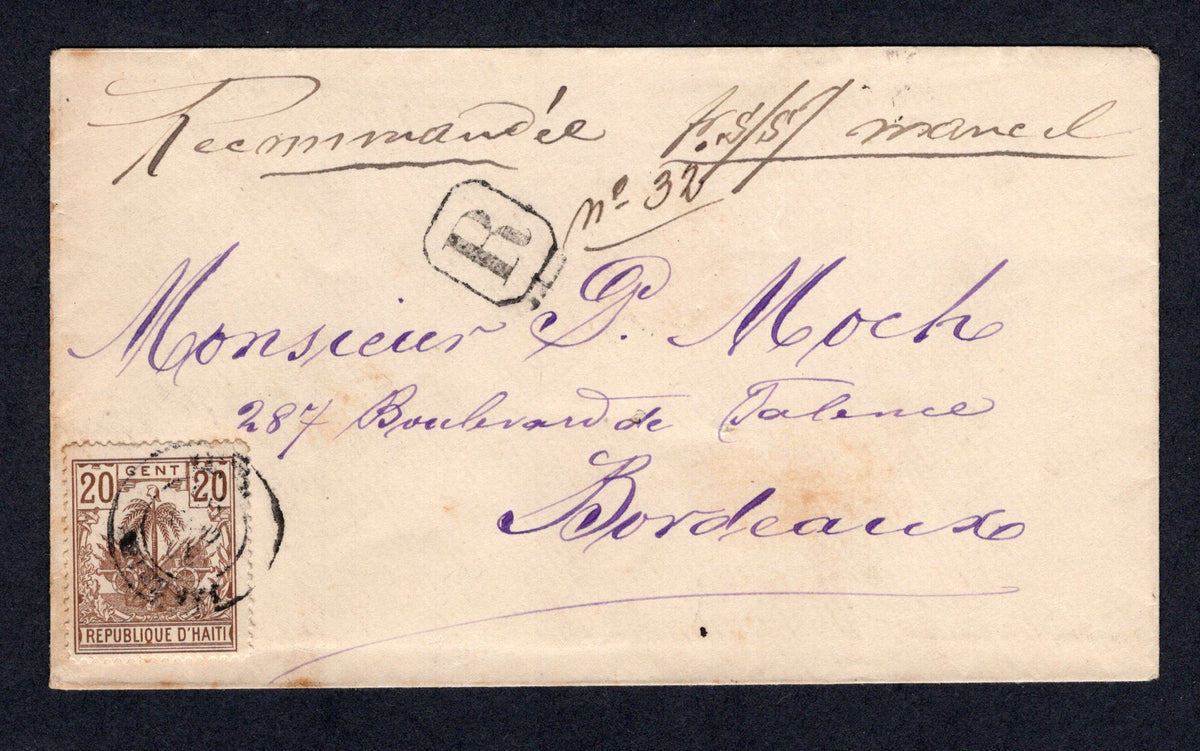 Recommandée
p. s/s/ marcel
nº 32
R
Monsieur P. Moch
287 Boulevard de Talence
Bordeaux
20 CENT 20
REPUBLIQUE D'HAITI